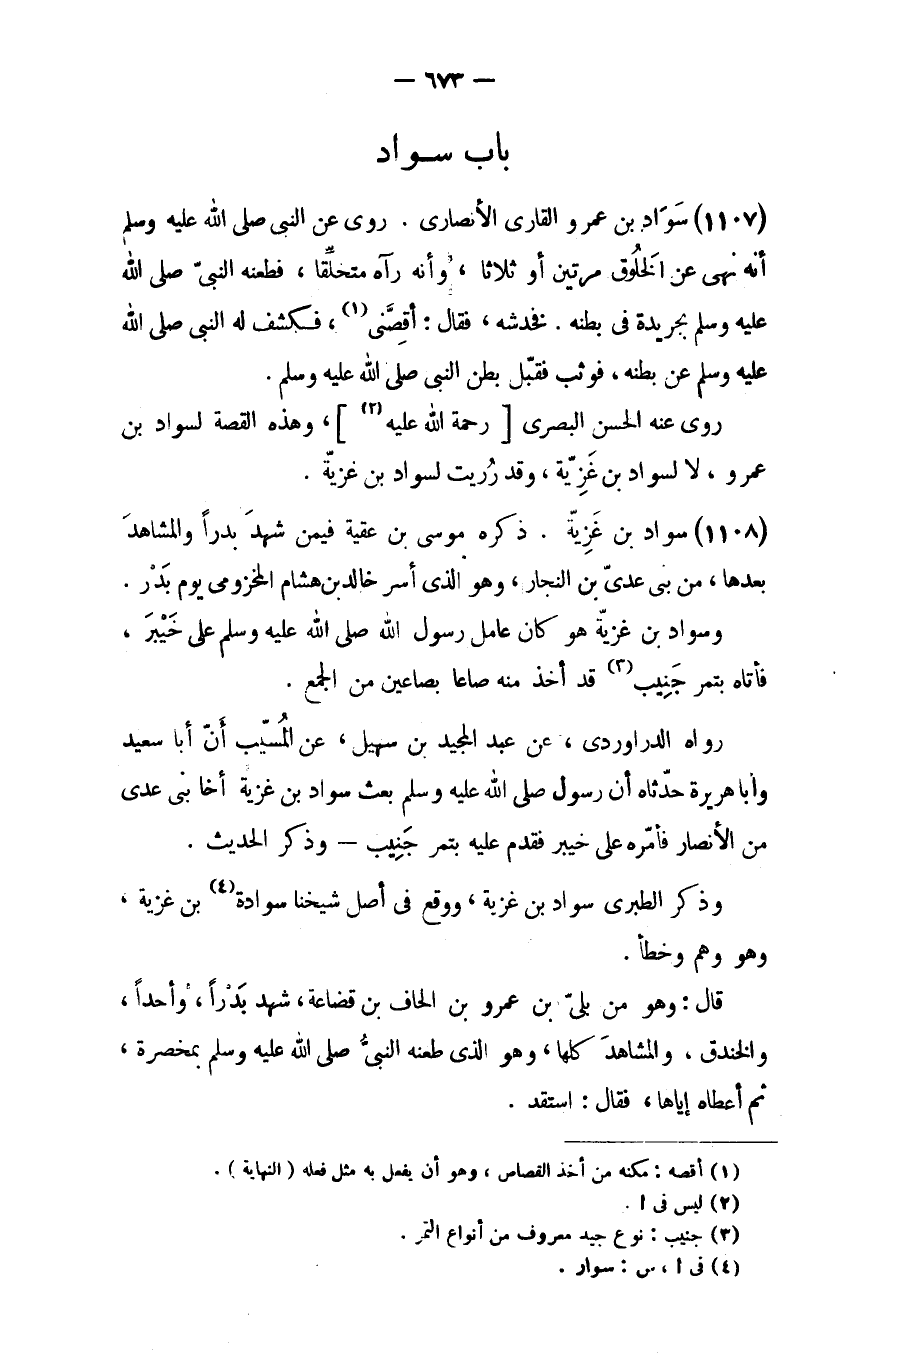 — ٦٧٣ —
باب سواد
(١١٠٧) سَوَاد بن عمرو القارى الأنصارى . روى عن النبى صلى الله عليه وسلم
أنه نهى عن الخَلُوق مرتين أو ثلاثا ، وأنه رآه متخلّقا ، فطعنه النبىّ صلى الله
عليه وسلم بجريدة فى بطنه . فخدشه ، فقال : أقِصَّنى(١) ، فكشف له النبى صلى الله
عليه وسلم عن بطنه ، فوثب فقبّل بطن النبى صلى الله عليه وسلم .
روى عنه الحسن البصرى [ رحمة الله عليه(٢) ] ، وهذه القصة لسواد بن
عمرو ، لا لسواد بن غَزِيّة ، وقد رُريت لسواد بن غزيةّ .
(١١٠٨) سواد بن غَزِيةّ . ذكره موسى بن عقبة فيمن شهدَ بدراً والمشاهدَ
بعدها ، من بنى عدىّ بن النجار ، وهو الذى أسر خالد بن هشام المخزومى يوم بَدْر .
وسواد بن غزيةّ هو كان عامل رسول الله صلى الله عليه وسلم على خَيْبَرَ ،
فأتاه بتمر جَنِيب(٣) قد أخذ منه صاعا بصاعين من الجمع .
رواه الدراوردى ، عن عبد المجيد بن سهيل ، عن المُسيّب أَنّ أبا سعيد
وأبا هريرة حدّثاه أن رسول صلى الله عليه وسلم بعث سواد بن غزية أخا بنى عدى
من الأنصار فأمّره على خيبر فقدم عليه بتمر جَنِيب — وذكر الحديث .
وذكر الطبرى سواد بن غزية ، ووقع فى أصل شيخنا سوادة(٤) بن غزية ،
وهو وهم وخطأ .
قال : وهو من بلىّ بن عمرو بن الحاف بن قضاعة ، شهد بَدْراً ، وأحداً ،
والخندق ، والمشاهدَ كلها ، وهو الذى طعنه النبىُّ صلى الله عليه وسلم بمخصرة ،
ثم أعطاه إياها ، فقال : استقد .
(١) أقصه : مكنه من أخذ القصاس ، وهو أن يفعل به مثل فعله ( النهاية ) .
(٢) ليس فى ا .
(٣) جنيب : نوع جيد معروف من أنواع التمر .
(٤) فى ا ، س : سوار .